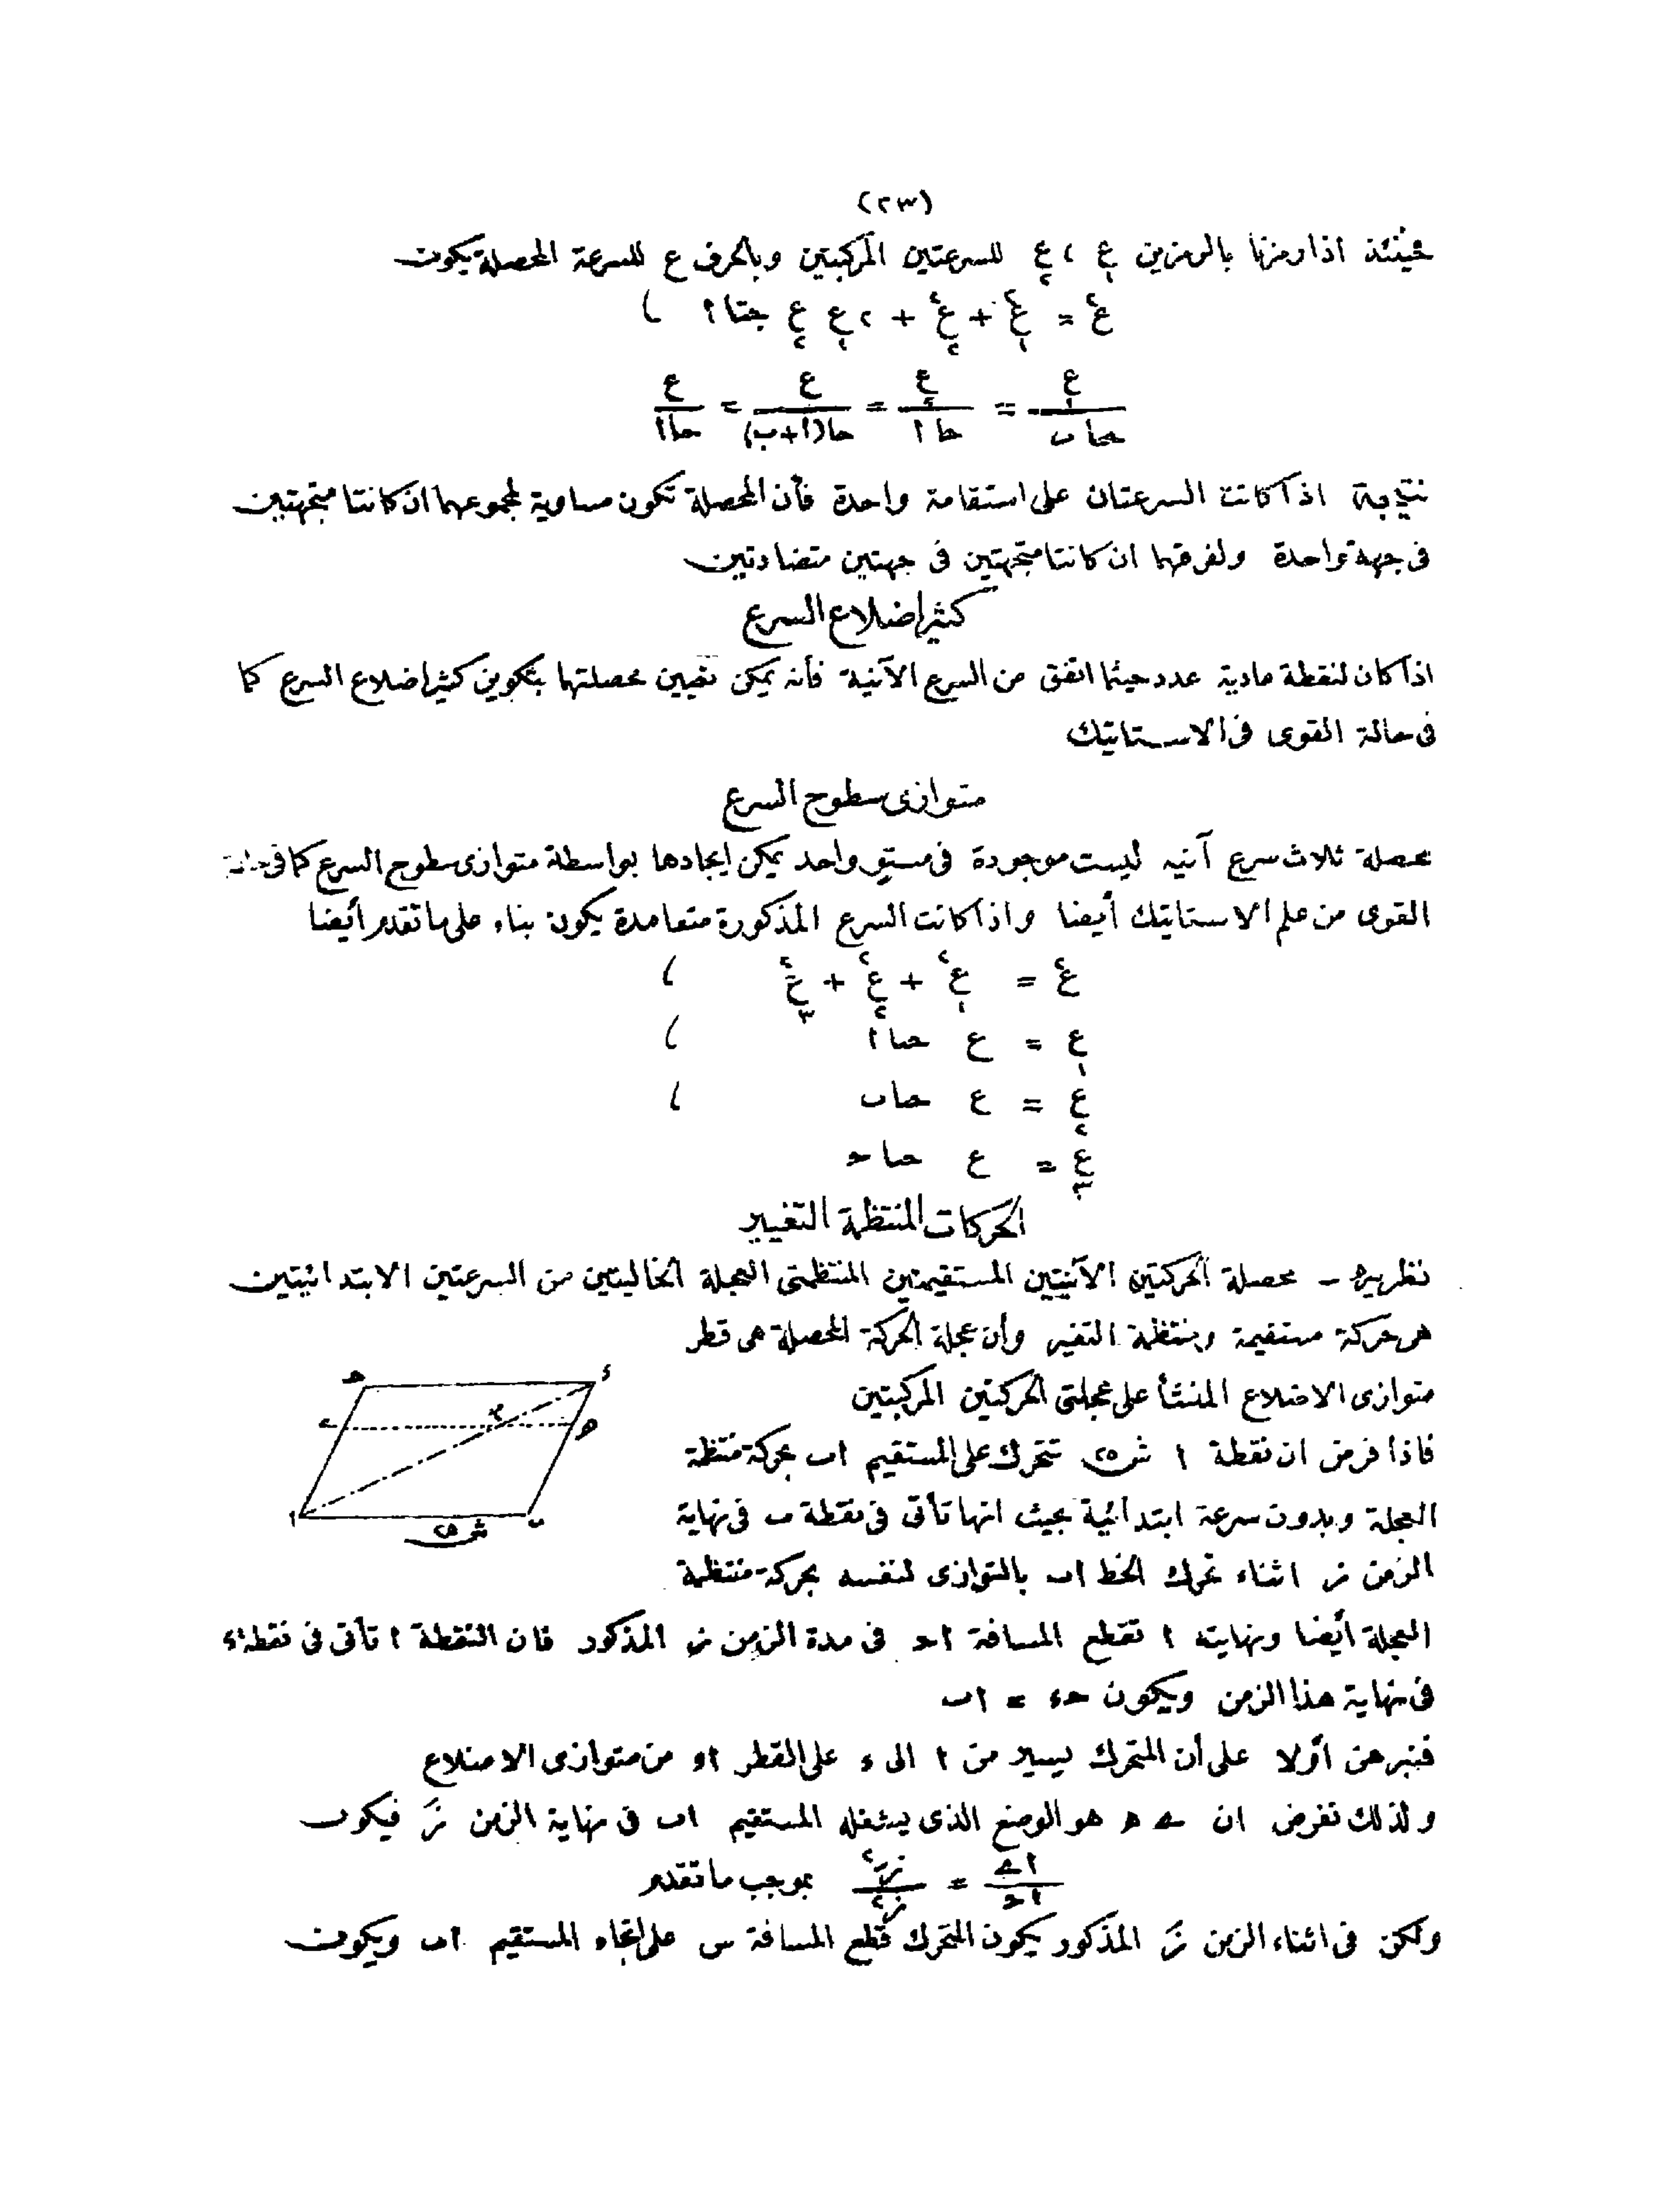 (٢٣)
فحينئذ اذا رمزنا بالرمزين ع١ ، ع٢ للسرعتين المركبتين وبالحرف ع للسرعة المحصلة يكون
ع٢ = ع١٢ + ع٢٢ + ٢ع١ ع٢ جتا ٢ ،
ع١ / حاب = ع٢ / حا أ = ع / حا(أ+ب) = ع / حاا
نتيجة اذا كانت السرعتان على استقامة واحدة فأن المحصلة تكون مساوية لمجموعهما ان كانتا متجهتين
فى جهة واحدة ولفرقهما ان كانتا متجهتين فى جهتين متضادتين
كثير اضلاع السرع
اذا كان لنقطة مادية عدد حيثما اتفق من السرع الآنية فأنه يمكن تعيين محصلتها بتكوين كثير اضلاع السرع كما
فى حالة القوى فى الاستاتيك
متوازى سطوح السرع
محصلة ثلاث سرع آنيه ليست موجودة فى مستوٍ واحد يمكن ايجادها بواسطة متوازى سطوح السرع كما فى حالة
القوى من علم الاستاتيك أيضا واذا كانت السرع المذكورة متعامدة يكون بناء على ما تقدم أيضا
ع٢ = ع١٢ + ع٢٢ + ع٣٢ ،
ع١ = ع حتاأ ،
ع٢ = ع حتاب ،
ع٣ = ع حتاحـ
الحركات المنتظمة التغيير
نظريه - محصلة الحركتين الآنيتين المستقيمتين المنتظمتى العجلة الخاليتين من السرعتين الابتدائيتين
هى حركة مستقيمة ومنتظمة التغير وأن عجلة الحركة المحصلة هى قطر
متوازى الاضلاع المنشأ على عجلتى الحركتين المركبتين
فاذا فرض ان نقطة ا شكل ٢٥ تتحرك على المستقيم اب بحركة منتظمة
العجلة وبدون سرعة ابتدائية بحيث انها تأتى فى نقطة ب فى نهاية
الزمن ز اثناء تحرك الخط اب بالتوازى لنفسه بحركة منتظمة
العجلة أيضا ونهايته ا تقطع المسافة احـ فى مدة الزمن ز المذكور فان النقطة ا تأتى فى نقطة ء
فى نهاية هذا الزمن ويكون حـء = اب
فنبرهن أولا على أن المتحرك يسير من ا الى ء على القطر اء من متوازى الاضلاع
ولذلك نفرض ان ے ه هو الوضع الذى يشغله المستقيم اب فى نهاية الزمن زَ فيكون
اے / احـ = زَ٢ / ز٢ بموجب ما تقدم
ولكن فى اثناء الزمن زَ المذكور يكون المتحرك قطع المسافة س على اتجاه المستقيم اب ويكون
حـ
ء
ے
م
ه
ا
ب
شكل ٢٥